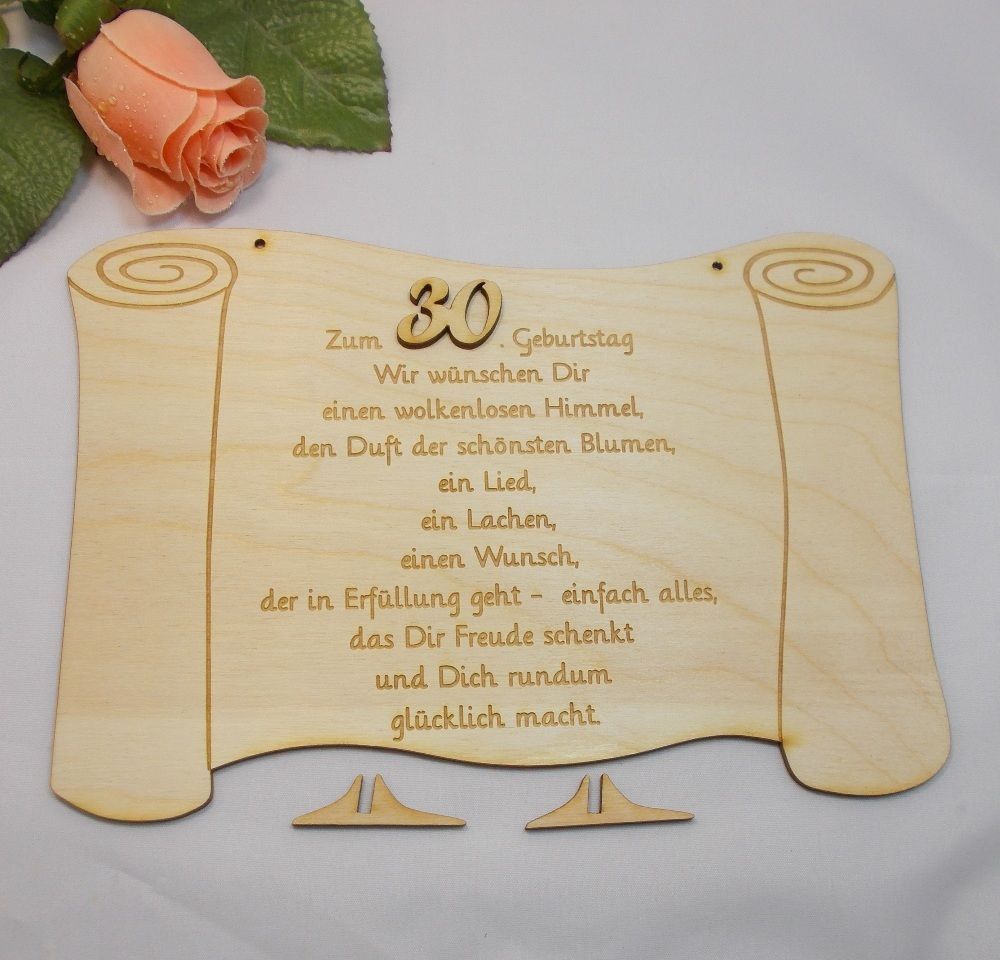 Zum 30. Geburtstag
Wir wünschen Dir
einen wolkenlosen Himmel,
den Duft der schönsten Blumen,
ein Lied,
ein Lachen,
einen Wunsch,
der in Erfüllung geht - einfach alles,
das Dir Freude schenkt
und Dich rundum
glücklich macht.